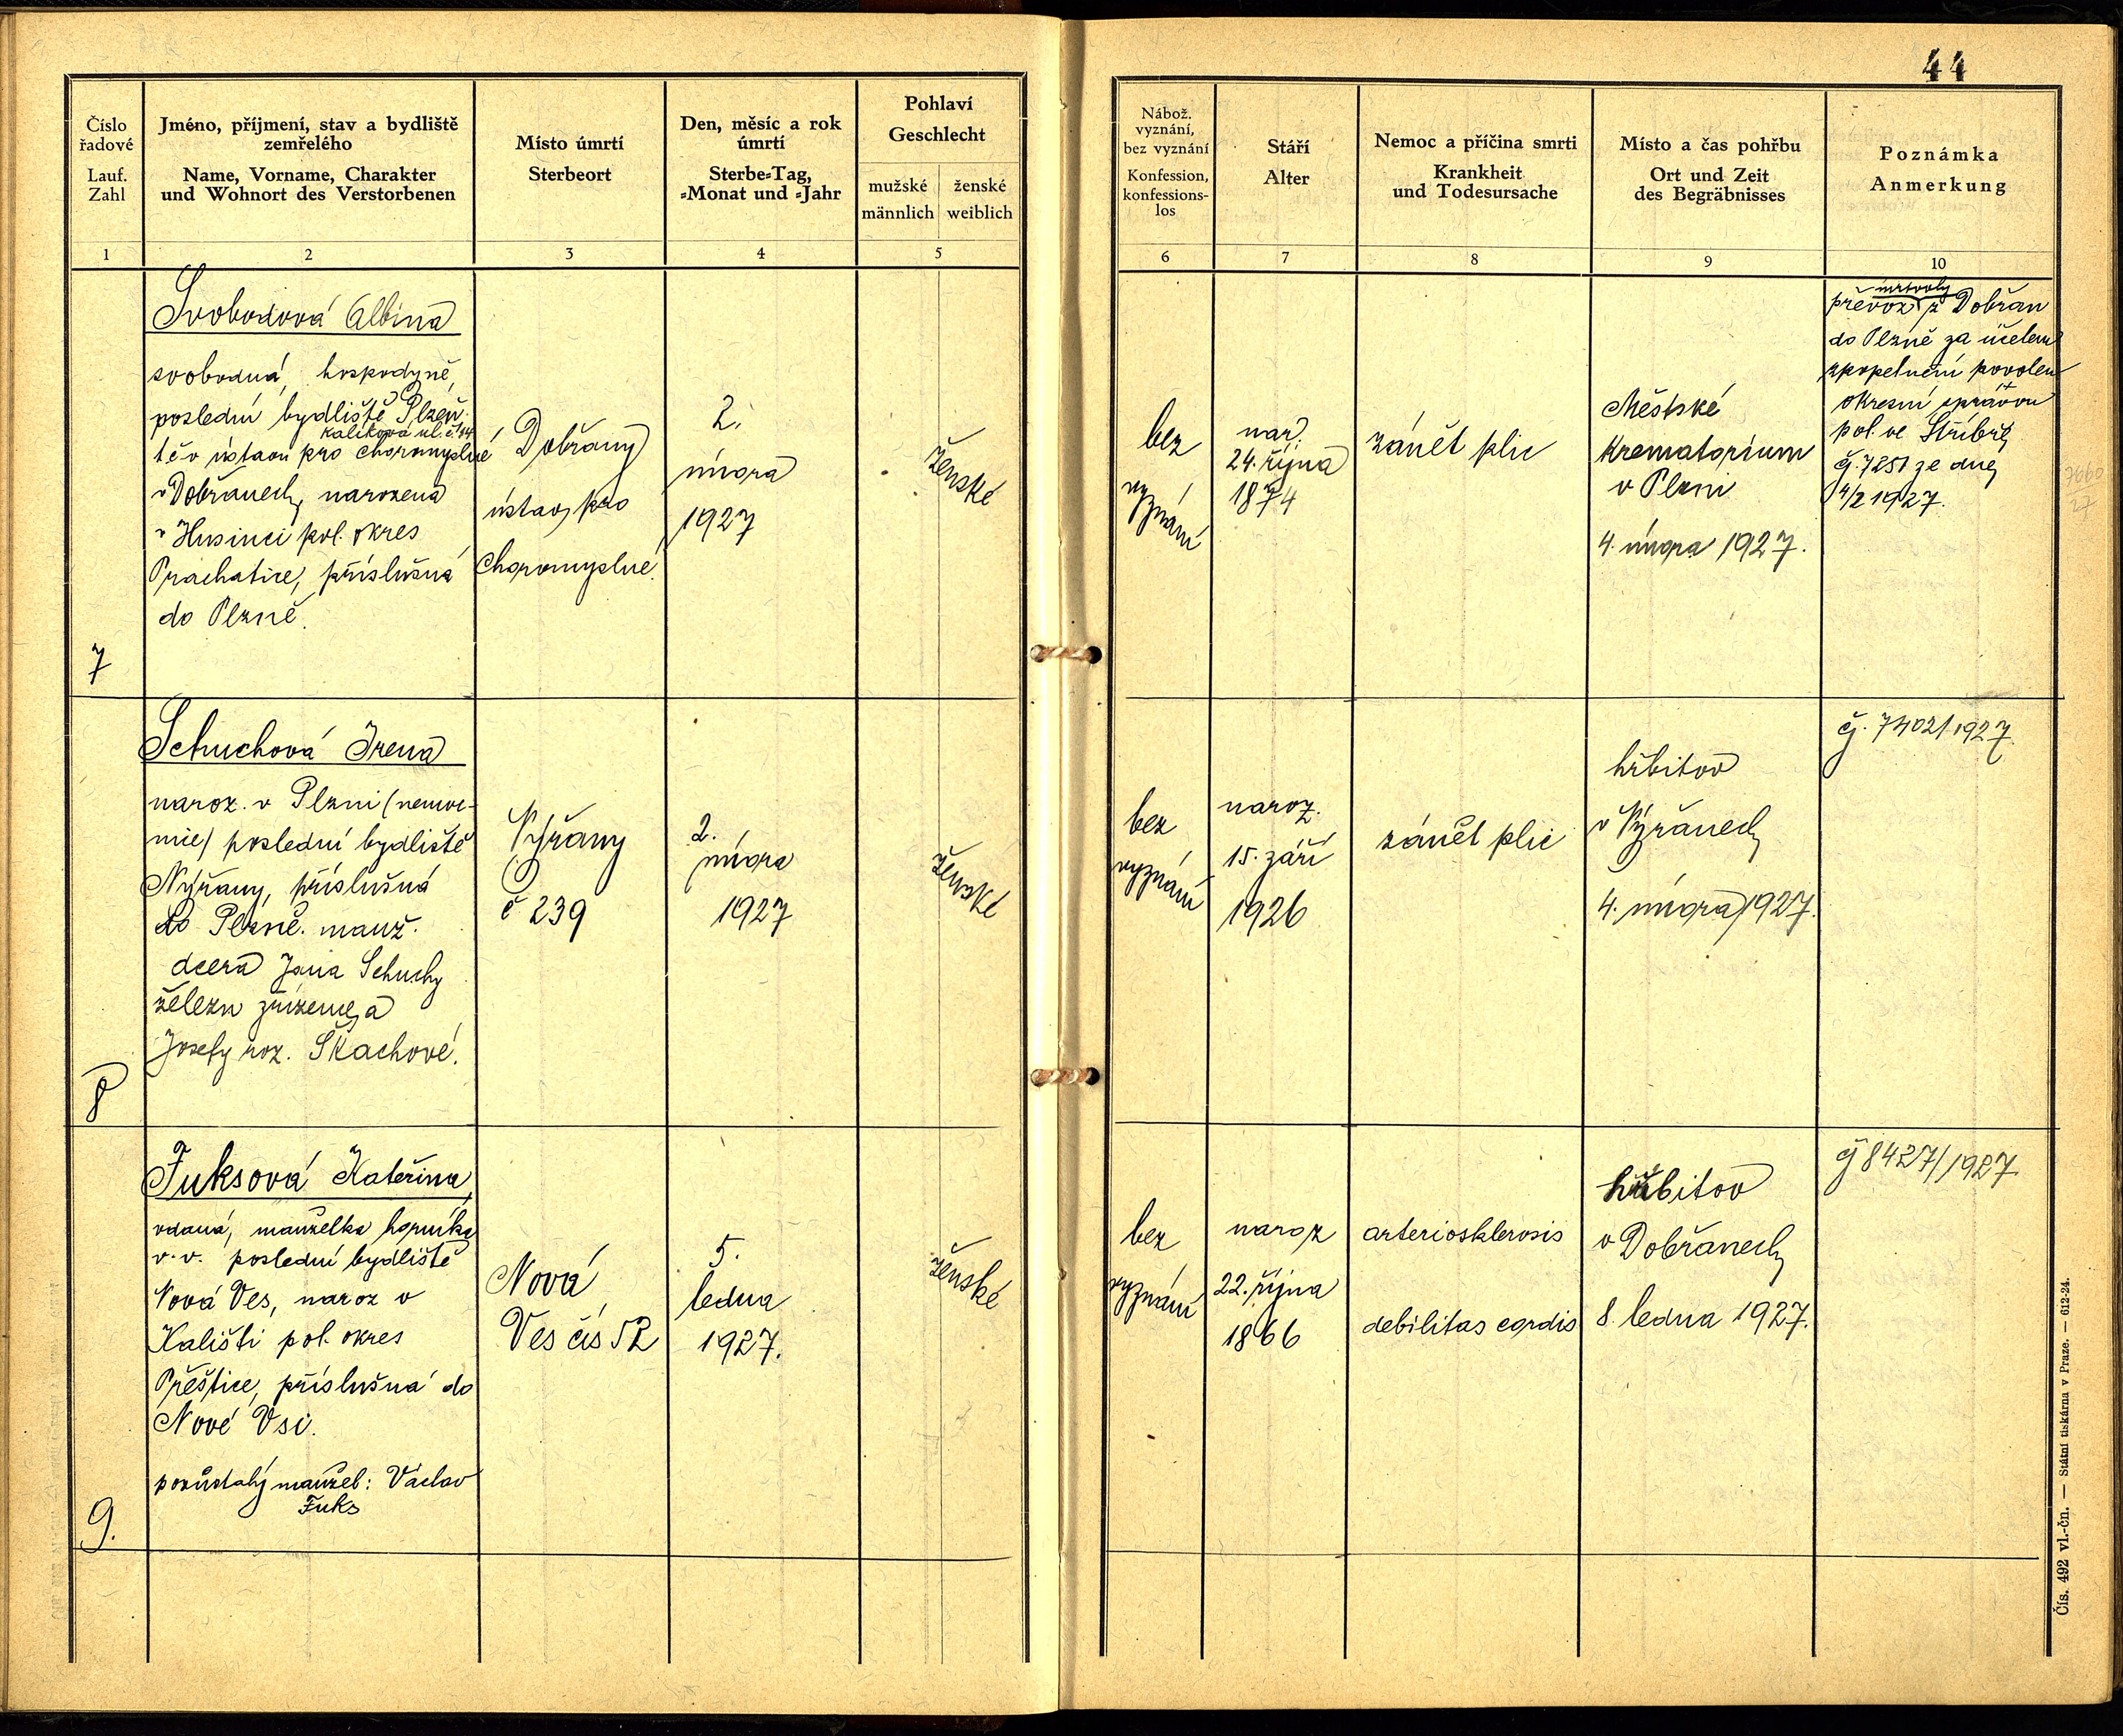 44
Číslo
řadové
Lauf.
Zahl
Jméno, příjmení, stav a bydliště
zemřelého
Name, Vorname, Charakter
und Wohnort des Verstorbenen
Místo úmrtí
Sterbeort
Den, měsíc a rok
úmrtí
Sterbe-Tag,
-Monat und -Jahr
Pohlaví
Geschlecht
mužské
männlich
ženské
weiblich
Nábož.
vyznání,
bez vyznání
Konfession,
konfessions-
los
Stáří
Alter
Nemoc a příčina smrti
Krankheit
und Todesursache
Místo a čas pohřbu
Ort und Zeit
des Begräbnisses
Poznámka
Anmerkung
1
2
3
4
5
6
7
8
9
10
7
Svobodová Albina
svobodná, hospodyně,
poslední bydliště Plzeň
Kalikova ul. č. 14
t.č. v ústavu pro choromyslné
v Dobřanech, narozena
v Husinci pol. okres
Prachatice, příslušná
do Plzně.
Dobřany
ústav pro
choromyslné.
2.
února
1927
ženské
bez
vyznání
nar.
24. října
1874
zánět plic
Městské
krematorium
v Plzni
4. února 1927.
mrtvoly
převoz z Dobřan
do Plzně za účelem
zpopelnění povolen
okresní správou
pol. ve Stříbře
čj. 7251 ze dne
4/2 1927.
8
Schuchová Irena
naroz. v Plzni (nemoc-
nice) poslední bydliště
Nýřany, příslušná
do Plzně. manž.
dcera Jana Schuchy
železn zřízence a
Josefy roz. Škachové.
Nýřany
č 239
2.
února
1927
ženské
bez
vyznání
naroz.
15. září
1926
zánět plic
hřbitov
v Nýřanech
4. února 1927.
čj. 7402/1927.
9.
Fuksová Kateřina,
vdaná, manželka horníka
v. v. poslední bydliště
Nová Ves, naroz v
Kališti pol. okres
Přeštice, příslušná do
Nové Vsi.
pozůstalý manžel: Václav
Fuks
Nová
Ves čís 52
5.
ledna
1927.
ženské
bez
vyznání
naroz
22. října
1866
arteriosklerosis
debilitas cordis
hřbitov
v Dobřanech
8. ledna 1927.
čj 8427/1927.
Čís. 492 vl.-čn. — Státní tiskárna v Praze. — 612-24.